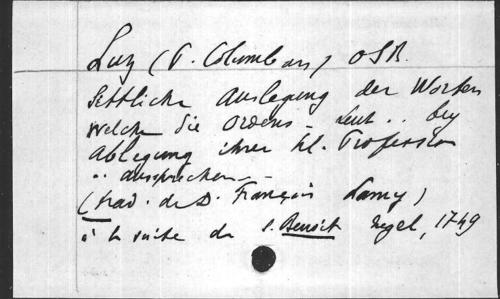 Luz (P. Columban) OSB.
Sittliche Auslegung der Worten
welche die Ordens-Leut .. bey
Ablegung ihrer hl. Profession
.. aussprechen -
(trad. de D. François Lamy)
à la suite de s. Benoit Regel, 1749